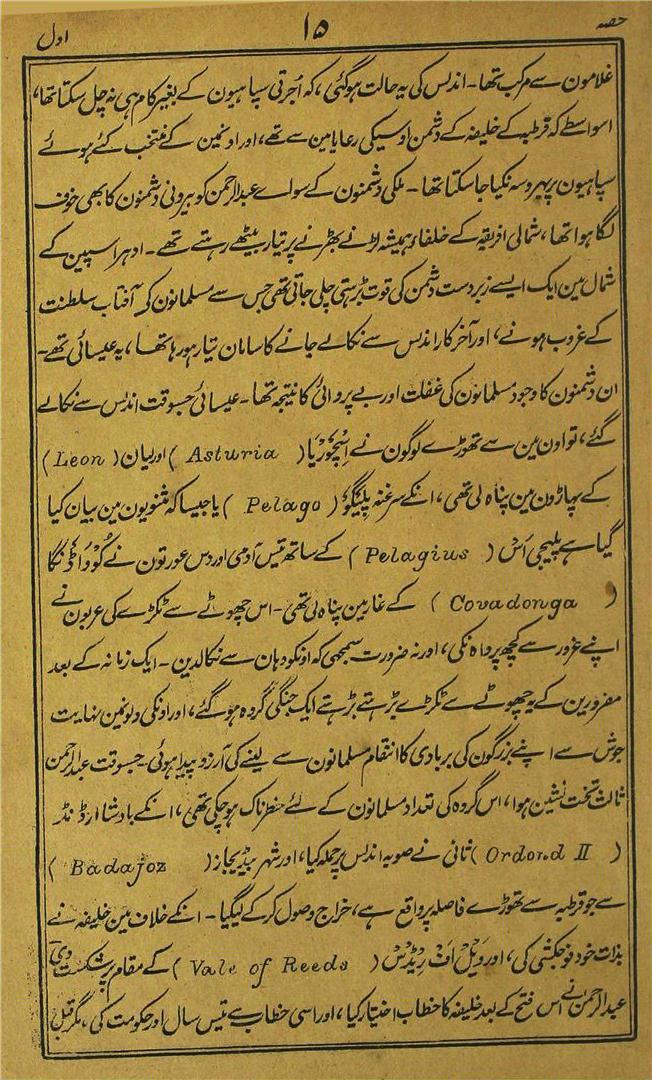 حصہ ۱۵ اول
غلامون سے مرکب تھا۔ اندلس کی یہ حالت ہوگئی، کہ اُجرتی سپاہیون کے بغیر کام ہی نہ چل سکتا تھا،
اسواسطے کہ قرطبہ کے خلیفہ کے دشمن اوسیکی رعایا مین سے تھے، اور اونمین کے منتخب کئے ہوئے
سپاہیون پر بہروسہ نکیا جا سکتا تھا۔ ملکی دشمنون کے سواے عبدالرحمن کو بیرونی دشمنون کا بھی خوف
لگا ہوا تھا، شمالی افریقہ کے خلفاء ہمیشہ لڑنے بھڑنے پر تیار بیٹھے رہتے تھے۔ ادہر اسپین کے
شمال مین ایک ایسے زبردست دشمن کی قوت بڑہتی چلی جاتی تھی جس سے مسلمانون کے آفتاب سلطنت
کے غروب ہونے، اور آخر کار اندلس سے نکالے جانے کا سامان تیار ہو رہا تھا، یہ عیسائی تھے۔
ان دشمنون کا وجود مسلمانون کی غفلت اور بے پروائی کا نتیجہ تھا۔ عیسائی جسوقت اندلس سے نکالے
گئے، تو اون مین سے تھوڑے لوگون نے اِسْچُوْرْیَا (Asturia) اور لیان (Leon)
کے پہاڑون مین پناہ لی تھی، انکے سرغنہ پلیگو (Pelago) یا جیسا کہ مثنویون مین بیان کیا
گیا ہے پلیجی اَسْ (Pelagius) کے ساتھ تیس آدمی اور دس عورتون نے کُووَاڈنگا
(Covadonga) کے غار مین پناہ لی تھی۔ اس چھوٹے سے ٹکڑے کی عربون نے
اپنے غرور سے کچھ پرواہ نکی، اور نہ ضرورت سمجھی کہ اونکو وہان سے نکالدین۔ ایک زمانہ کے بعد
مفرورین کے یہ چھوٹے سے ٹکڑے بڑہتے بڑہتے ایک جنگی گروہ ہو گئے، اور اونکی دلونمین نہایت
جوش سے اپنے بزرگون کی بربادی کا انتقام مسلمانون سے لینے کی آرزو پیدا ہوئی۔ جسوقت عبدالرحمن
ثالث تخت نشین ہوا، اس گروہ کی تعداد مسلمانون کے لئے خطرناک ہو چکی تھی، انکے بادشاہ ارڈنڈ
(Ordond II) ثانی نے صوبہ اندلس پر حملہ کیا، اور شہر بیڈیجاز (Badajoz)
سے جو قرطبہ سے تھوڑے فاصلہ پر واقع ہے، خراج وصول کر کے لیگیا۔ انکے خلاف مین خلیفہ نے
بذات خود فوجکشی کی، اور وَیْل اَفْ رِیْڈْسْ (Vale of Reeds) کے مقام پر شکست دی
عبدالرحمن نے اس فتح کے بعد خلیفہ کا خطاب اختیار کیا، اور اسی خطاب سے تیس سال اور حکومت کی، مگر قبل